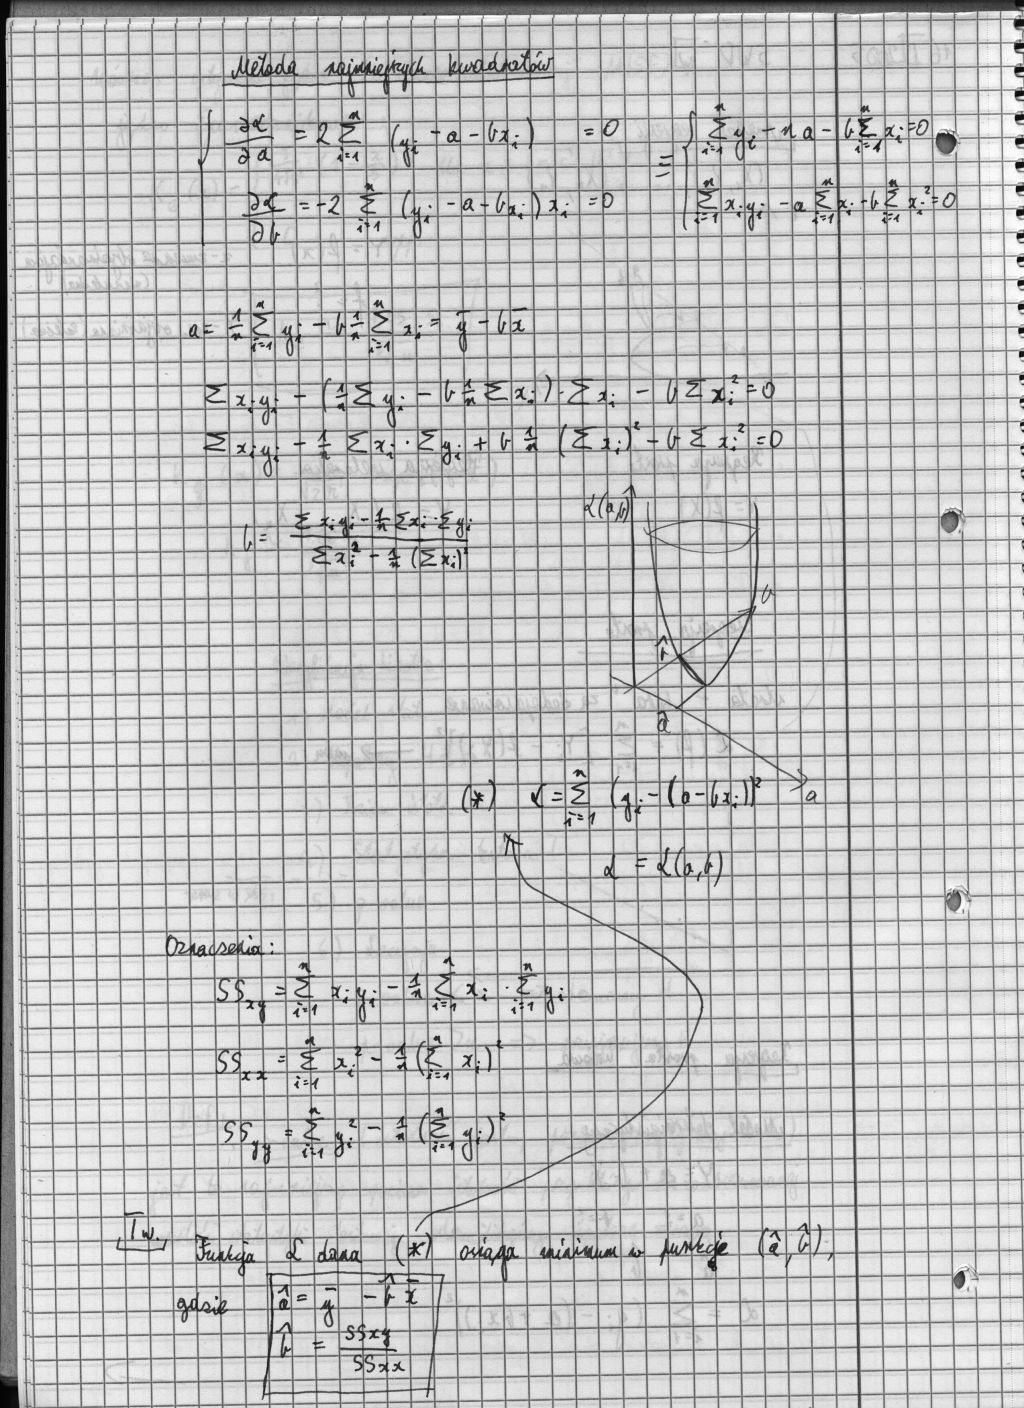 Metoda najmniejszych kwadratów
∂L/∂a = 2 ∑_{i=1}^{n} (y_i - a - bx_i) = 0
∂L/∂b = -2 ∑_{i=1}^{n} (y_i - a - bx_i) x_i = 0
≡ { ∑_{i=1}^{n} y_i - na - b ∑_{i=1}^{n} x_i = 0
∑_{i=1}^{n} x_i y_i - a ∑_{i=1}^{n} x_i - b ∑_{i=1}^{n} x_i^2 = 0
a = 1/n ∑_{i=1}^{n} y_i - b 1/n ∑_{i=1}^{n} x_i = ȳ - b x̄
∑ x_i y_i - (1/n ∑ y_i - b 1/n ∑ x_i) · ∑ x_i - b ∑ x_i^2 = 0
∑ x_i y_i - 1/n ∑ x_i · ∑ y_i + b 1/n (∑ x_i)^2 - b ∑ x_i^2 = 0
b = (∑ x_i y_i - 1/n ∑ x_i · ∑ y_i) / (∑ x_i^2 - 1/n (∑ x_i)^2)
L(a,b)
b
b̂
â
a
(*) L = ∑_{i=1}^{n} (y_i - (a - bx_i))^2
L = L(a,b)
Oznaczenia:
SS_xy = ∑_{i=1}^{n} x_i y_i - 1/n ∑_{i=1}^{n} x_i · ∑_{i=1}^{n} y_i
SS_xx = ∑_{i=1}^{n} x_i^2 - 1/n (∑_{i=1}^{n} x_i)^2
SS_yy = ∑_{i=1}^{n} y_i^2 - 1/n (∑_{i=1}^{n} y_i)^2
Tw. Funkcja L dana (*) osiąga minimum w punkcie (â, b̂),
gdzie â = ȳ - b̂ x̄
b̂ = SSxy / SSxx